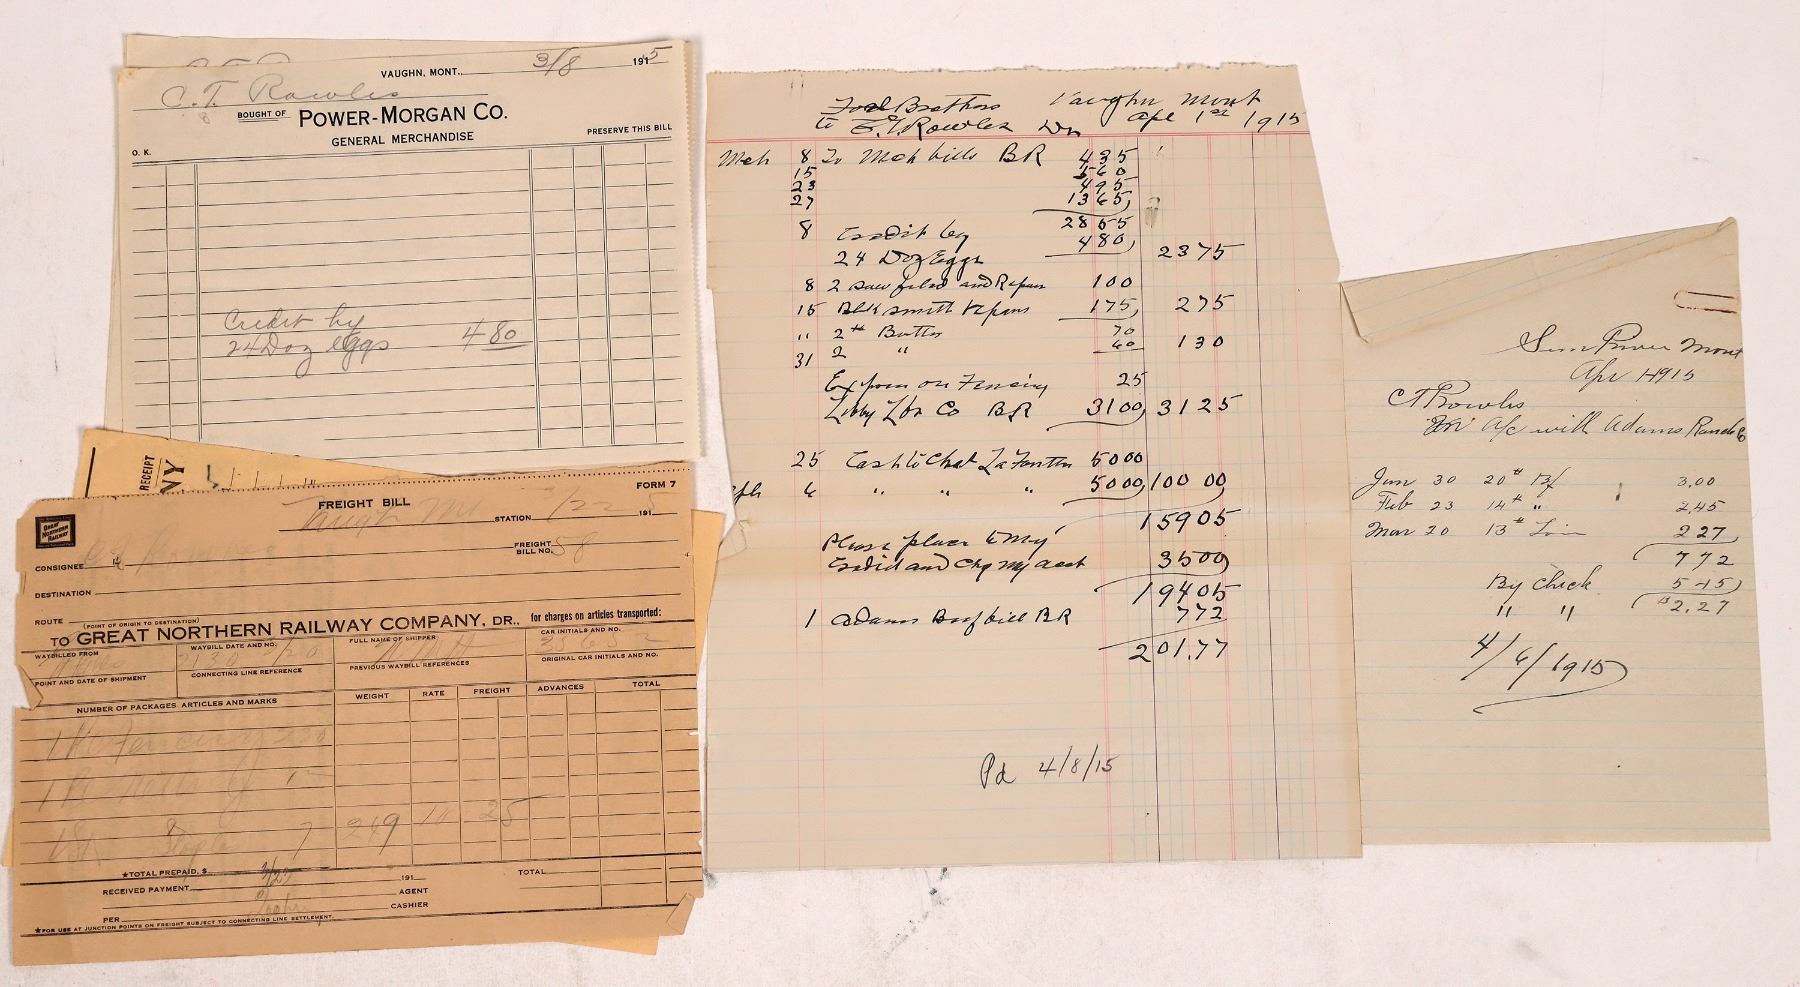 VAUGHN, MONT., 3/8 1915
C. T. Rowles
BOUGHT OF POWER-MORGAN CO.
GENERAL MERCHANDISE
PRESERVE THIS BILL
O. K.
Credit by
24 Doz eggs 4 80
RECEIPT
FORM 7
FREIGHT BILL
GREAT NORTHERN RAILWAY
STATION 3/22 1915
CONSIGNEE
FREIGHT BILL NO. 58
DESTINATION
ROUTE (POINT OF ORIGIN TO DESTINATION)
TO GREAT NORTHERN RAILWAY COMPANY, DR., for charges on articles transported:
WAYBILLED FROM WAYBILL DATE AND NO. FULL NAME OF SHIPPER CAR INITIALS AND NO.
POINT AND DATE OF SHIPMENT CONNECTING LINE REFERENCE PREVIOUS WAYBILL REFERENCES ORIGINAL CAR INITIALS AND NO.
NUMBER OF PACKAGES, ARTICLES AND MARKS WEIGHT RATE FREIGHT ADVANCES TOTAL
fencing 230
7 249 10 25
★TOTAL PREPAID, $ TOTAL
RECEIVED PAYMENT 3/25 191 AGENT
PER CASHIER
★FOR USE AT JUNCTION POINTS ON FREIGHT SUBJECT TO CONNECTING LINE SETTLEMENT.
Brothers Vaughn Mont
to C.T. Rowles Dr Apr 1st 1915
Mch 8 To Mch bills BR 435
15 560
23 495
27 1365
2855
8 Credit by 480
24 Doz Eggs 2375
8 2 saw filed and Repair 100
15 Blksmith repairs 175 275
" 2# Butter 70
31 2 " 60 130
Express on Fencing 25
Libby Lbr Co BR 3100 3125
25 Cash to Chat La 5000
6 " " " 5000 100 00
15905
Please place to my
Credit and Chg my acct 3500
19405
1 Adams Beef bill BR 772
201.77
Pd 4/8/15
Sun River Mont
Apr 1-1915
CT Rowles
In a/c with Adams Ranch Co
Jan 30 20# Bf 3.00
Feb 23 14# " 2.45
Mar 20 13# Loin 2 27
7 72
By Check 5 45
" " $2.27
4/6/1915